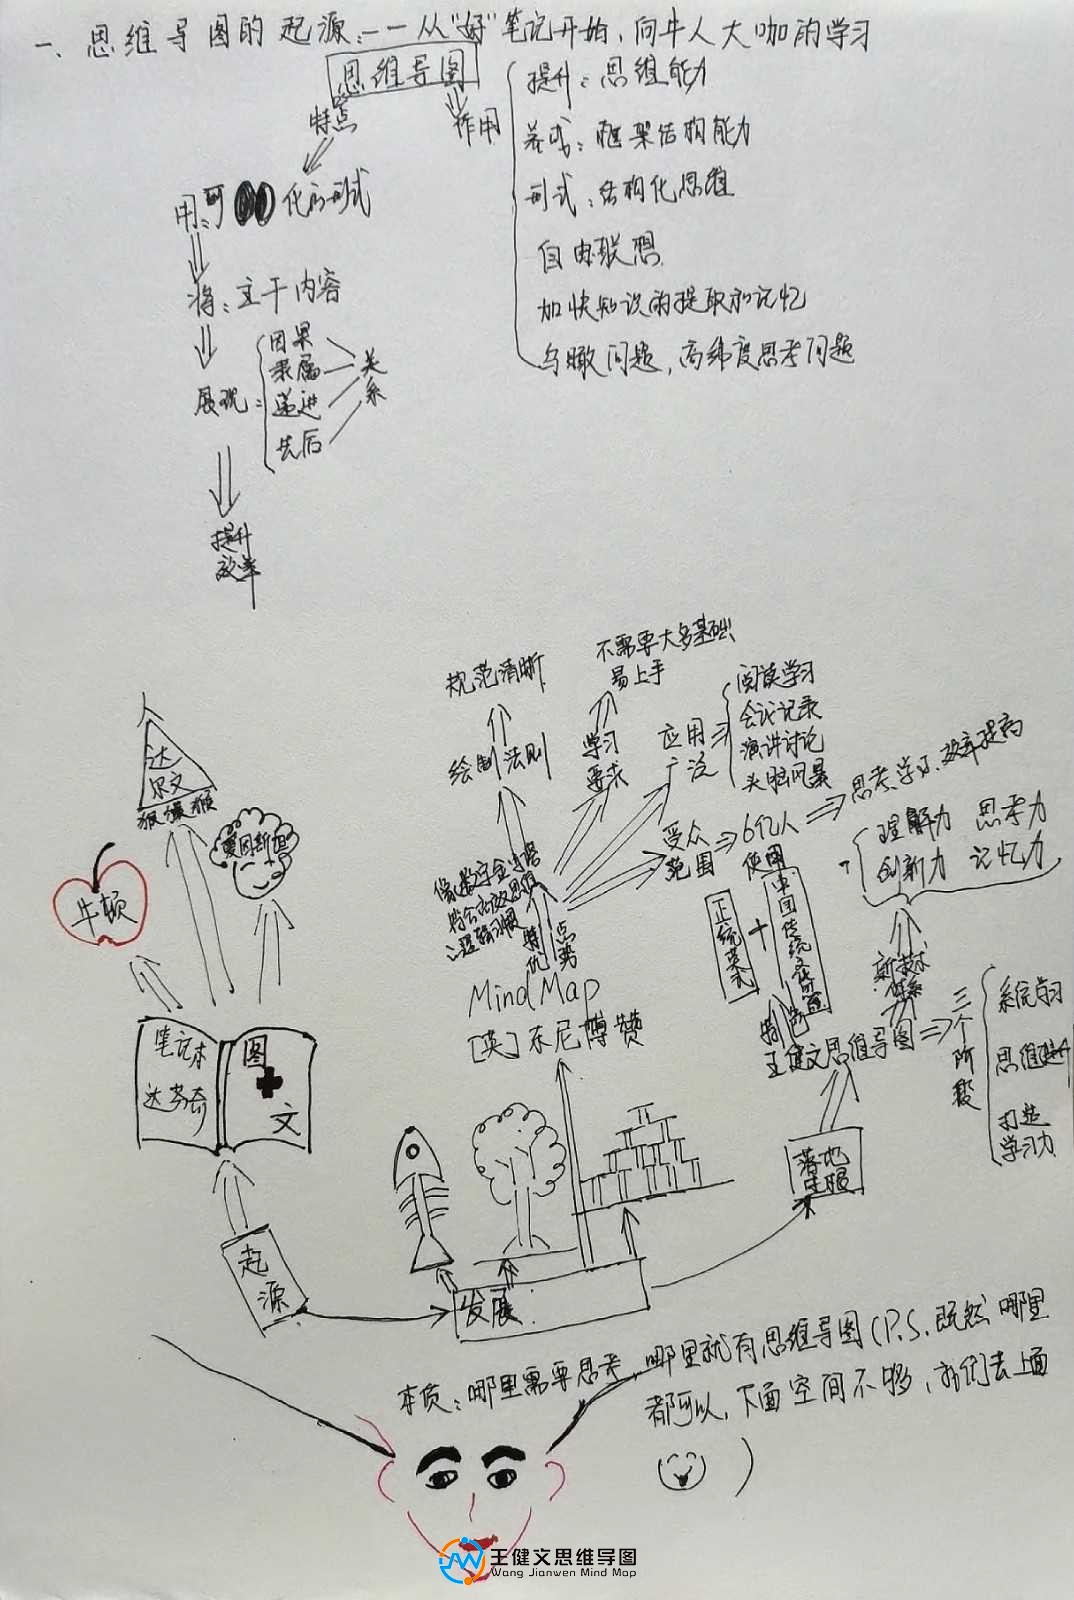 一、思维导图的起源:——从“好”笔记开始,向牛人大咖的学习
思维导图
特点
作用
提升:思维能力
养成:框架结构能力
形式:结构化思维
自由联想
加快知识的提取和记忆
鸟瞰问题,高纬度思考问题
用:可 化的形式
将:主干内容
展现:
因果
隶属
递进
先后
关系
提升
效率
人
达
尔文
猴
爱因斯坦
牛顿
笔记本
达芬奇
图
文
起源
规范清晰
绘制法则
不需要太多基础
易上手
学习
要求
应用
广泛
阅读学习
会议记录
演讲讨论
头脑风暴
受众
范围
6亿人
使用
思考、学习、效率提高
理解力 思考力
创新力 记忆力
特点
优势
Mind Map
[英]东尼博赞
正统英式
+
中国传统
特色
王健文思维导图
新技术
体系
三个阶段
系统学习
思维提升
打造
学习力
落地
生根
发展
本质:哪里需要思考,哪里就有思维导图(P.S.既然哪里
都可以,下面空间不够,我们去上面
)
王健文思维导图
Wang Jianwen Mind Map